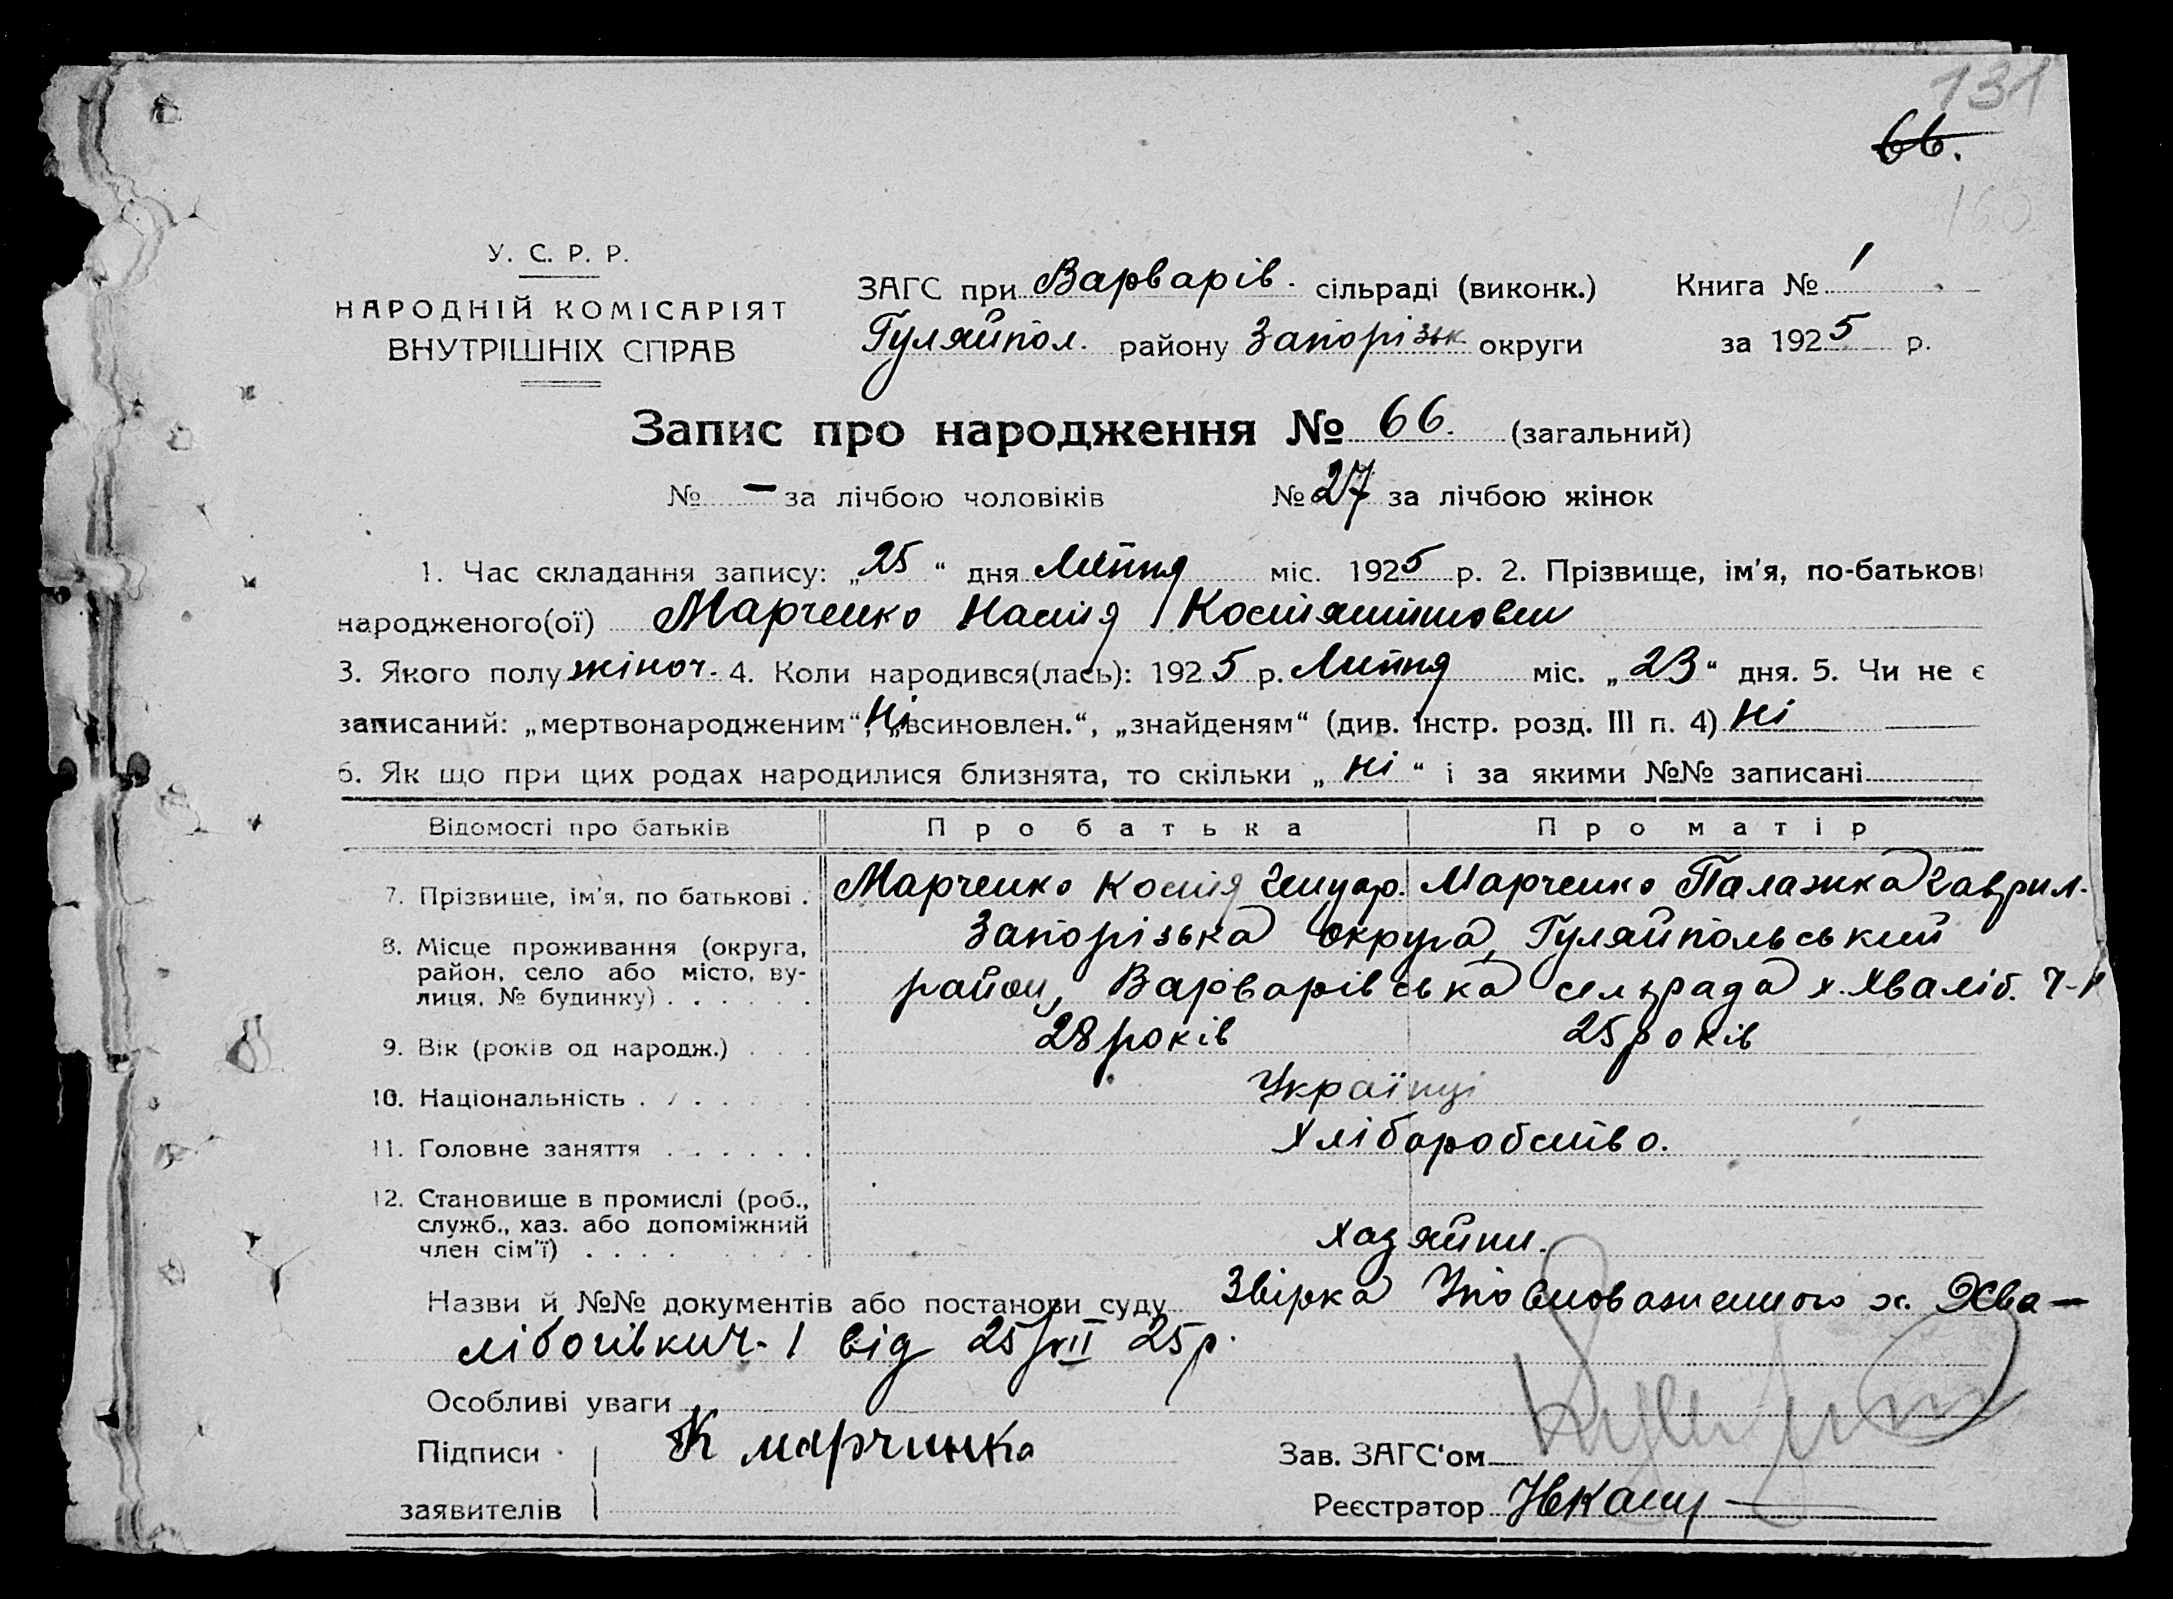 131
66.
160
У. С. Р. Р.
НАРОДНІЙ КОМІСАРІЯТ
ВНУТРІШНІХ СПРАВ
ЗАГС при Варварів. сільраді (виконк.) Книга № 1
Гуляйпол. району Запорізьк округи за 1925 р.
Запис про народження № 66. (загальний)
№ — за лічбою чоловіків № 27 за лічбою жінок
1. Час складання запису: „25“ дня Липня міс. 1925 р. 2. Прізвище, ім'я, по-батькові
народженого(ої) Марченко Настя Костянтиновни
3. Якого полу жіноч. 4. Коли народився(лась): 1925 р. Липня міс. „23“ дня. 5. Чи не є
записаний: „мертвонародженим“, Ні „всиновлен.“, „знайденям“ (див. інстр. розд. III п. 4) Ні
6. Як що при цих родах народилися близнята, то скільки „Ні“ і за якими №№ записані
Відомості про батьків Про батька Про матір
7. Прізвище, ім'я, по батькові . Марченко Костя Марченко Палажка Гаврил.
8. Місце проживання (округа, Запорізька округа, Гуляйпольський
район, село або місто, ву-
лиця, № будинку) . . . . . . район, Варварівська сельрада х. Хваліб. Ч-1
9. Вік (років од народж.) . . . 28 років 25 років
10. Національність . . . . . . Українці
11. Головне заняття . . . . . . Хліборобство.
12. Становище в промислі (роб.,
служб., хаз. або допоміжний
член сім'ї) . . . . . . . . Хазяйни.
Назви й №№ документів або постанови суду Звірка Уповноваженного х. Хва—
лібогівки Ч-1 від 25/VII 25р.
Особливі уваги
Підписи К марчинко Зав. ЗАГС'ом
заявителів Реєстратор